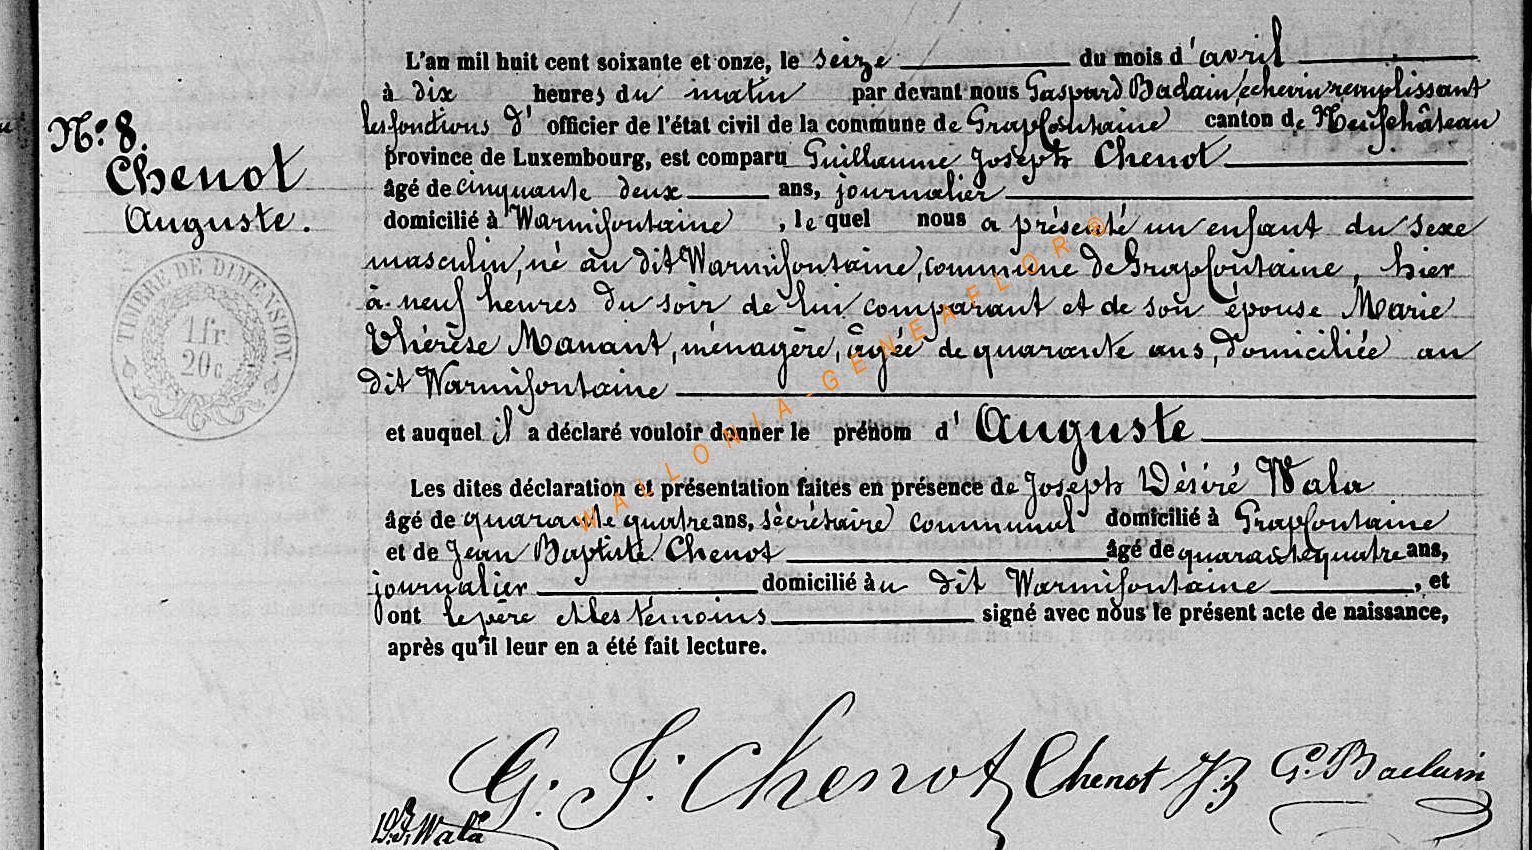 L'an mil huit cent soixante et onze, le seize du mois d'avril
à dix heures du matin par devant nous Gaspard Badain, échevin remplissant
les fonctions d' officier de l'état civil de la commune de Grapfontaine canton de Neufchâteau
N.º 8.
Chenot
Auguste.
province de Luxembourg, est comparu Guillaume Joseph Chenot
âgé de cinquante deux ans, journalier
domicilié à Warmifontaine, le quel nous a présenté un enfant du sexe
masculin, né au dit Warmifontaine, commune de Grapfontaine, hier
à neuf heures du soir de lui comparant et de son épouse Marie
Thérèse Manant, ménagère, âgée de quarante ans, domiciliée au
dit Warmifontaine
et auquel il a déclaré vouloir donner le prénom d' Auguste
Les dites déclaration et présentation faites en présence de Joseph Désiré Wala
âgé de quarante quatre ans, sécrétaire communal domicilié à Grapfontaine
et de Jean Baptiste Chenot âgé de quarante quatre ans,
journalier domicilié au dit Warmifontaine, et
ont le père et les témoins signé avec nous le présent acte de naissance,
après qu'il leur en a été fait lecture.
TIMBRE DE DIMENSION
1 fr
20 c
WALLONIA-GENEAFLOR®
G. J. Chenot Chenot J B G. Badain
Wala